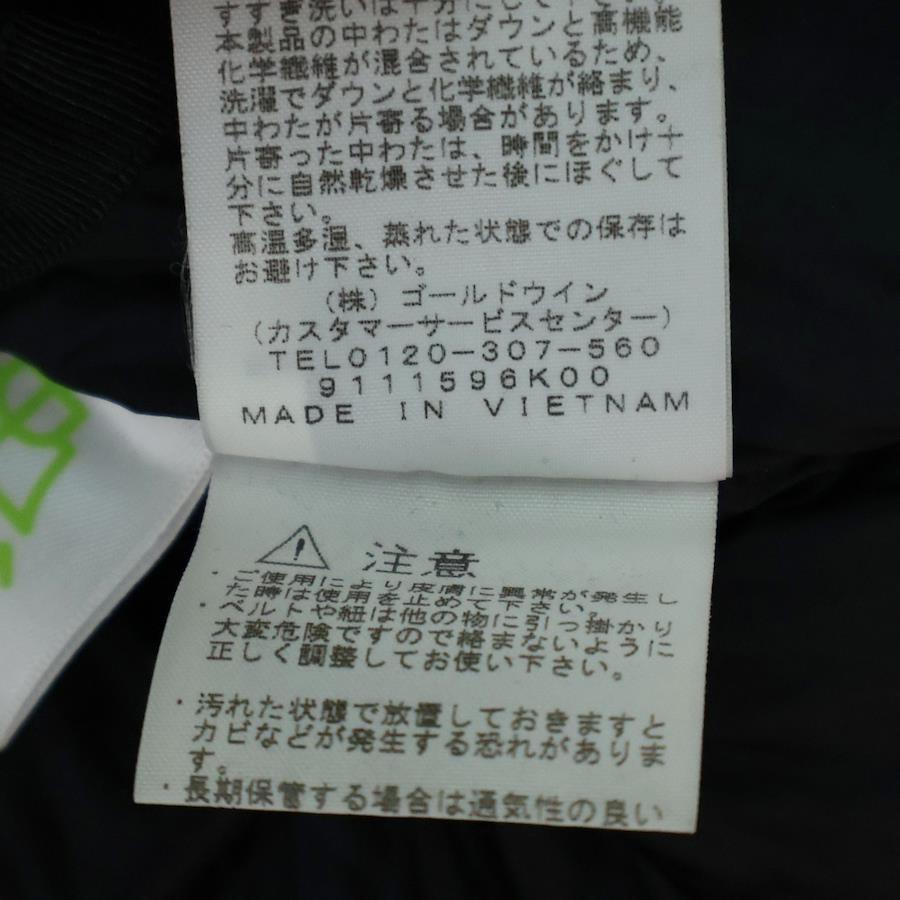 すすぎ洗いは十分にして下さい。
本製品の中わたはダウンと高機能
化学繊維が混合されているため、
洗濯でダウンと化学繊維が絡まり、
中わたが片寄る場合があります。
片寄った中わたは、時間をかけ十
分に自然乾燥させた後にほぐして
下さい。
高温多湿、蒸れた状態での保存は
お避け下さい。
（株）ゴールドウイン
（カスタマーサービスセンター）
TEL0120-307-560
9111596K00
MADE IN VIETNAM
注意
・ご使用により皮膚に異常が発生し
た時は使用を止めて下さい。
・ベルトや紐は他の物に引っ掛かり
大変危険ですので絡まないように
正しく調整してお使い下さい。
・汚れた状態で放置しておきますと
カビなどが発生する恐れがありま
す。
・長期保管する場合は通気性の良い